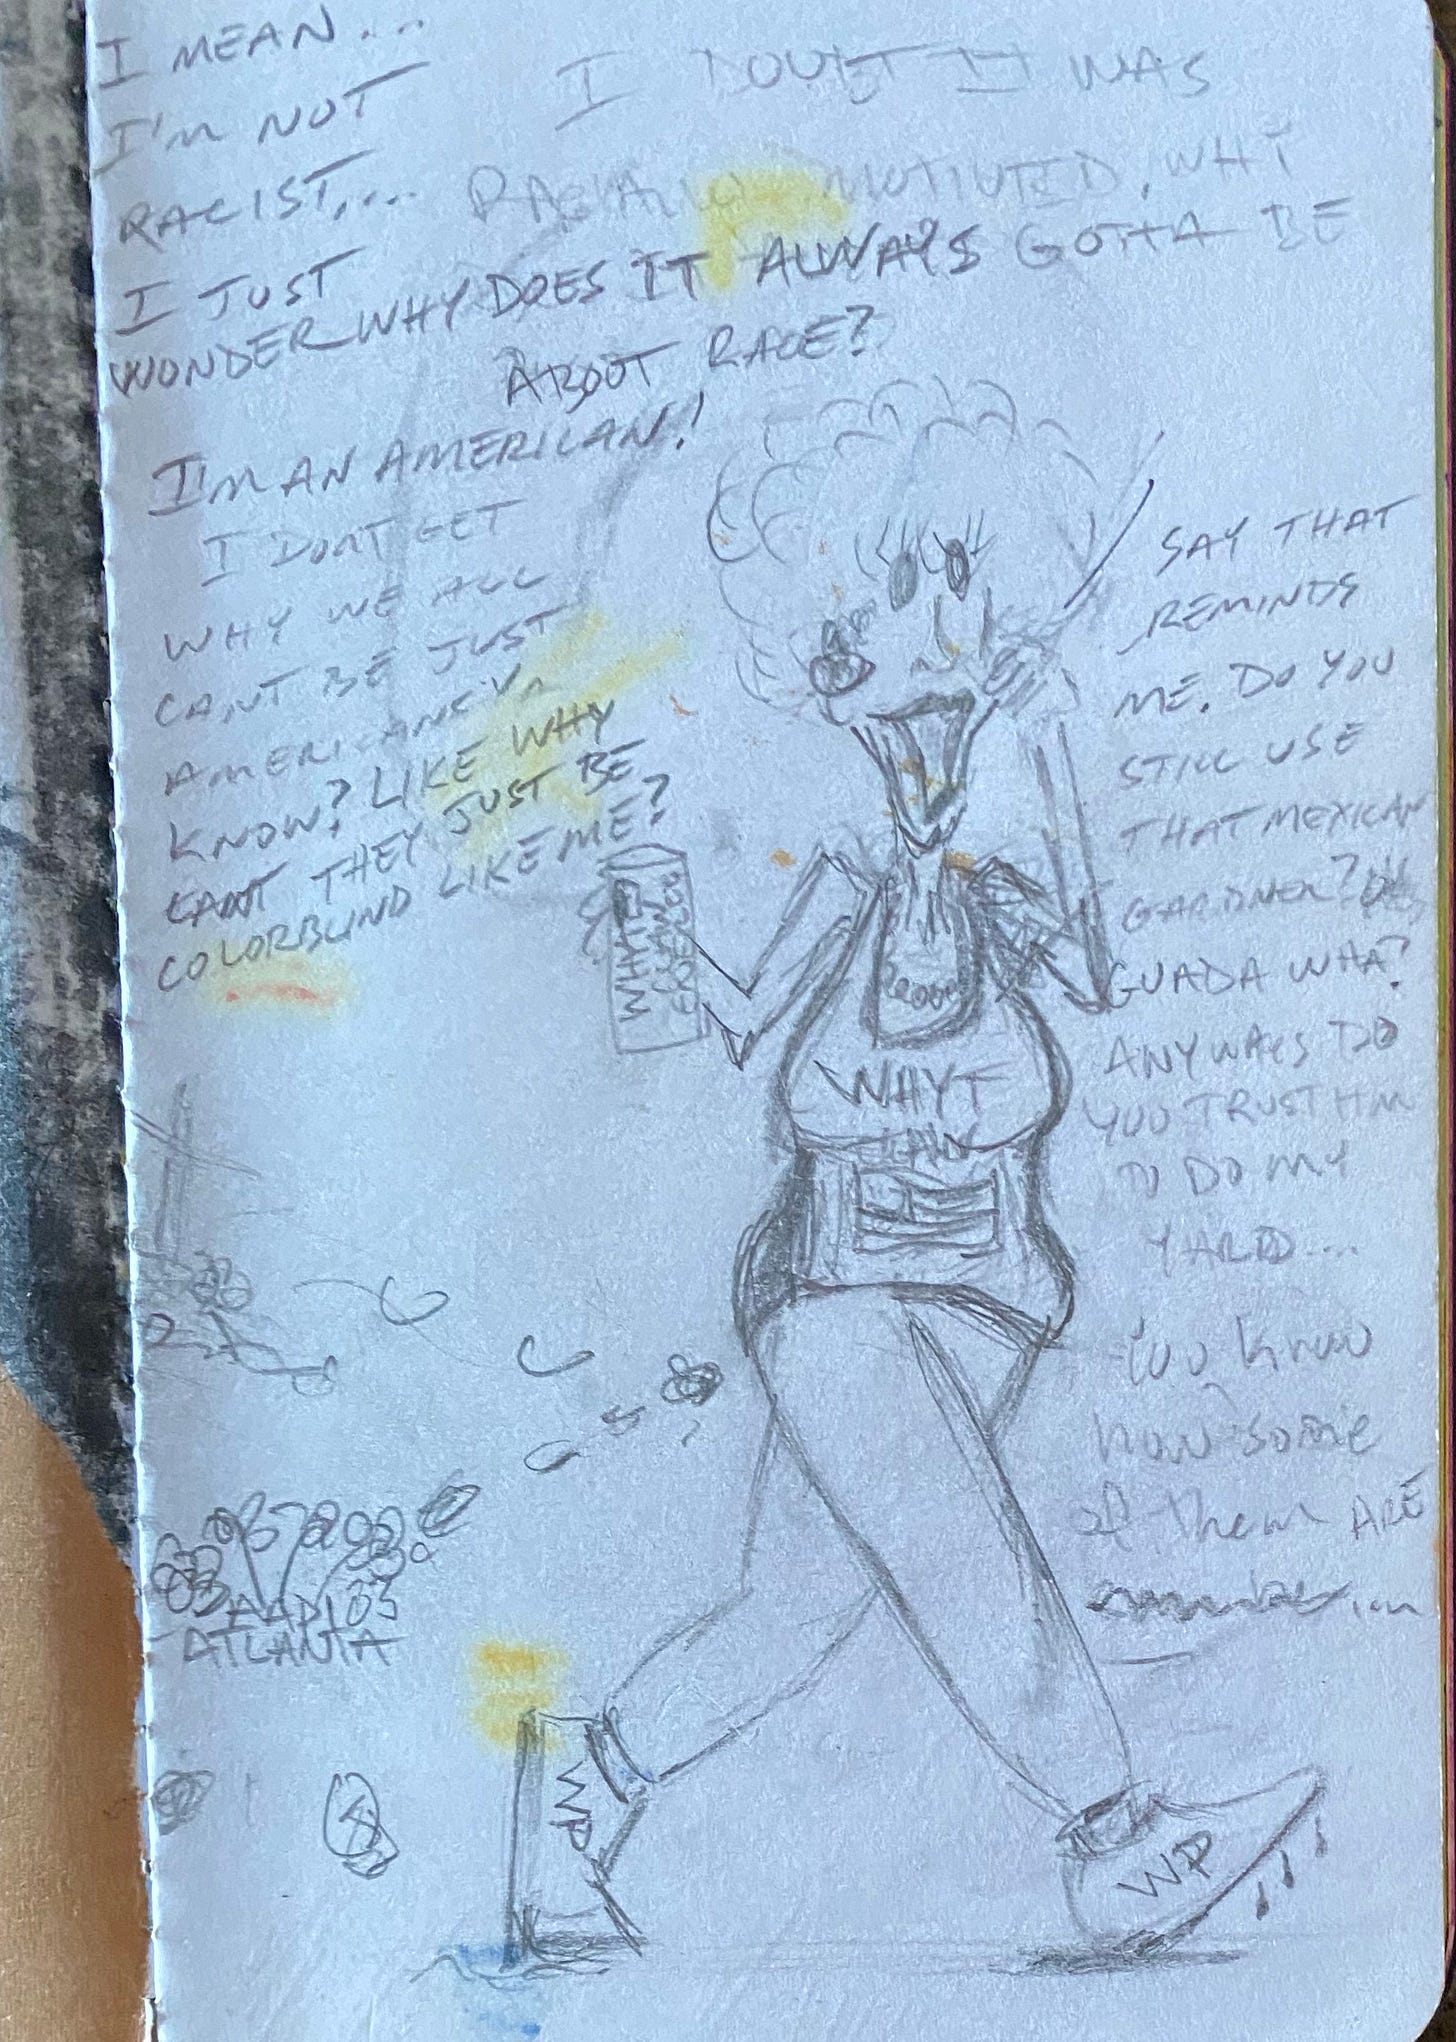 I MEAN...
I'M NOT
RACIST,...
I JUST
WONDER WHY DOES IT ALWAYS GOTTA BE
ABOUT RACE?
I DOUBT IT WAS
MOTIVTED, WHY
I'M AN AMERICAN!
I DONT GET
WHY WE ALL
CANT BE JUST
AMERICANS YA
KNOW? LIKE WHY
CANT THEY JUST BE
COLORBLIND LIKE ME?
SAY THAT
REMINDS
ME. DO YOU
STILL USE
THAT MEXICAN
GARDNER?
GUADA WHA?
ANYWAYS DO
YOU TRUST HIM
TO DO MY
YARD....
You know
how some
of them ARE
WHAYT
WP
WP
ATLANTA